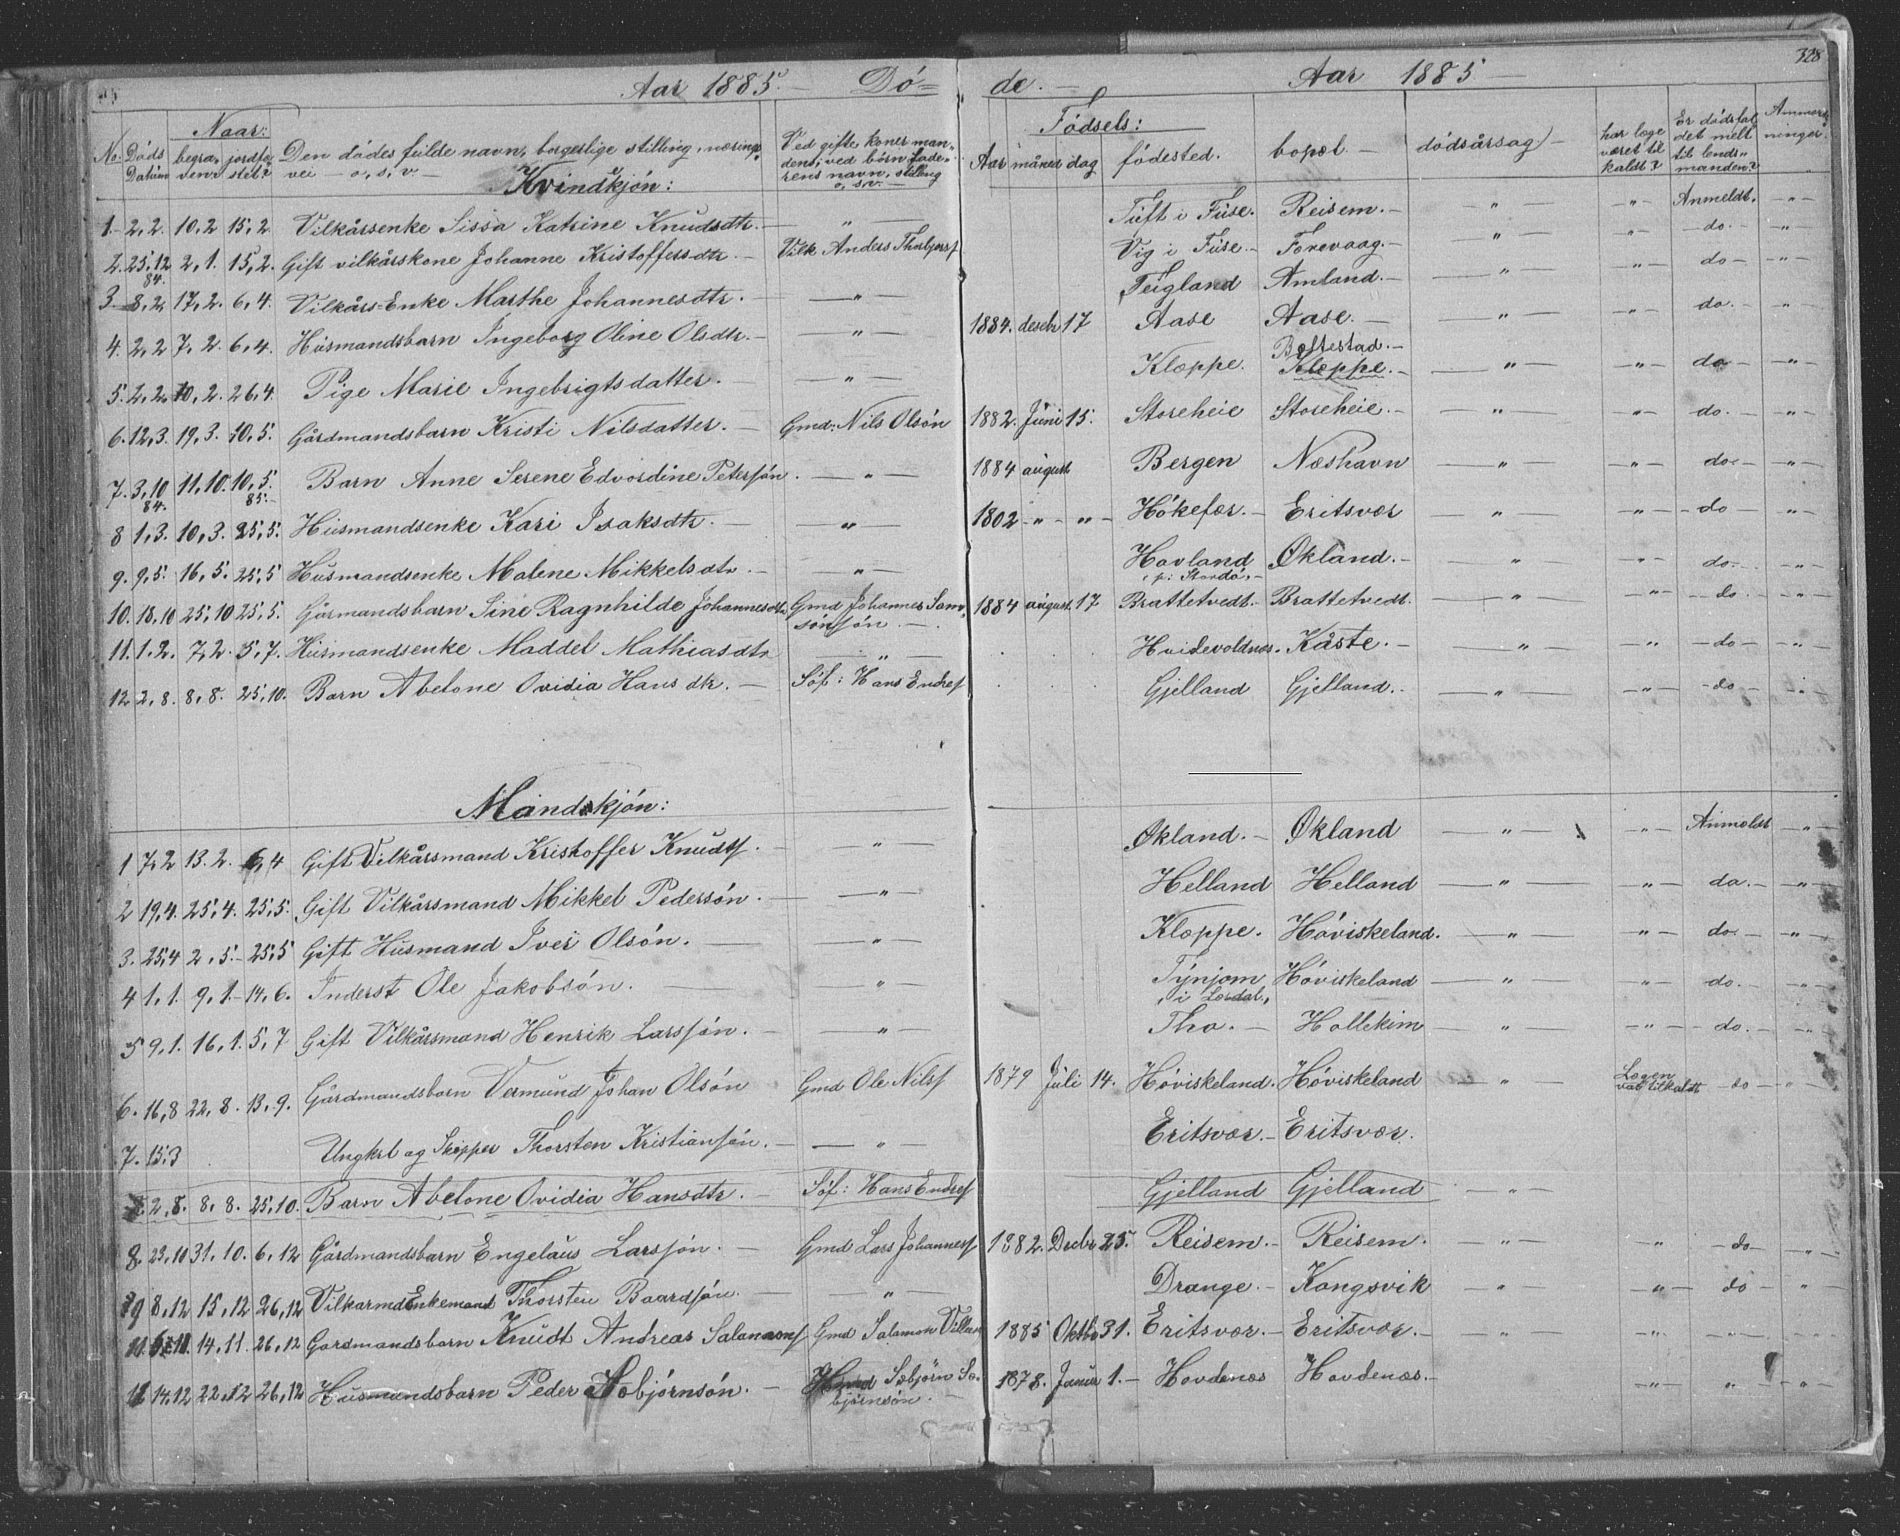 Aar 1885. Dö= de. Aar 1885 328
No. Döds Datum Naar: begra- ven jordfæ- stet? Den dödes fulde navn, borgerlige stilling, nærings- vei o, s, v. Ved gifte koner man- dens; ved börn fade- rens navn, stilling o, s. v. Födsels: Aar måned dag födested. bopæl dödsårsag har læge været til kaldt? Er dödsfal- det meldt til lends- manden? Anmærk- ninger.
Kvindkjön:
1. 2,2. 10,2 15,2 Vilkårsenke Sissa Katrine Knudsdtr. " Tuft i Fuse. Reisem. " " Anmeldt. "
2. 25,12 84. 2,1. 15,2. Gift vilkårskone Johanne Kristoffersdtr. Vilk Anders Thorbjørs Vig i Fuse. Forevaag. " " do. "
3. 8,2, 17,2. 6,4. Vilkårs-Enke Marthe Johannesdtr. " Teigland Amland. " " do "
4. 2,2 7,2. 6,4. Husmandsbarn Ingeborg Oline Olsdtr. " 1884. decbr 17 Aase Aase. " do. "
5. 2,2, 10,2. 26,4. Pige Marie Ingebrigtsdatter. " Kloppe. Bøftestad. Kloppe. " " do "
6. 12,3. 19,3. 10,5. Gårdmandsbarn Kristi Nilsdatter. Gmd: Nils Olsön 1882. Juni 15. Storeheie Storeheie. " " do. "
7. 3,10 84. 11,10. 10,5. 85. Barn Anne Serene Edvordine Petersön. " 1884 august Bergen Næshavn " " do "
8 1,3. 10,3. 25,5. Husmandsenke Kari Isaksdtr. " 1802 " " Hökefær. Eritsvær " " do "
9. 9,5. 16,5. 25,5 Husmandsenke Malene Mikkelsdtr. " Hovland p: Stordö. Økland. " " do. "
10. 18,10 25,10 25,5. Gårmandsbarn Sine Ragnhilde Johannesdtr Gmd Johannes Sam- sönsön. 1884 august. 17 Brattetvedt. Brattetvedt. " " do. "
11. 1.2. 7,2. 5,7. Husmandsenke Maddel Mathiasdtr " Hvidevoldnæs. Kåste. " " do "
12 2,8. 8,8. 25,10. Barn Abelone Ovidia Hansdtr. Söf: Hans Endres Gjelland Gjelland. " " do "
Mandskjön:
1 7,2 13.2. 6,4 Gift Vilkårsmand Kristoffer Knudts. " Økland. Økland " " Anmeldt "
2 19,4. 25,4. 25,5. Gift Vilkårsmand Mikkel Pedersön. " Helland Helland " " do. "
3. 25,4 2,5. 25,5 Gift Husmand Iver Olsön. " Kloppe. Höviskeland. " " do "
4 1,1. 9,1. 14,6. Inderst Ole Jakobsön. " Tynjom i Lærdal, Höviskeland " " do. "
5 9,1. 16,1. 5,7 Gift Vilkårsmand Henrik Larssön. " Tho. Hollekim " " do. "
6. 16,8 22,8. 13,9. Gårdmandsbarn Vermund Johan Olsön Gmd Ole Nils 1879 Juli 14. Höviskeland. Höviskeland " Lægen var tilkaldt do "
7. 15,3 Ungkrl og Skipper Thorsten Kristiansön. " Eritsvær. Eritsvær.
2,8. 8,8. 25,10. Barn Abelone Ovidia Hansdtr. Söf: Hans Endres Gjelland Gjelland "
8. 23,10 31,10. 6,12 Gårdmandsbarn Engelaus Larssön. Gmd Lars Johanness 1882. Decbr 25. Reisem. Reisem. " " do "
9 8,12 15,12 26,12 Vilkarmd Enkemand Thorsten Baardsön. " Drange. Kongsvik " " do "
14,11. 26,12 Gårdmandsbarn Knudt Andreas Salamons Gmd Salamon Villum 1885 Oktbr 31. Eritsvær. Eritsvær. " " " "
14.12 22,12 26,12 Husmandsbarn Peder Sæbjörnsön. Sæbjörn Sæ- björnsön. 1878. Januar 1. Hovdenæs Hovdenæs. " " "